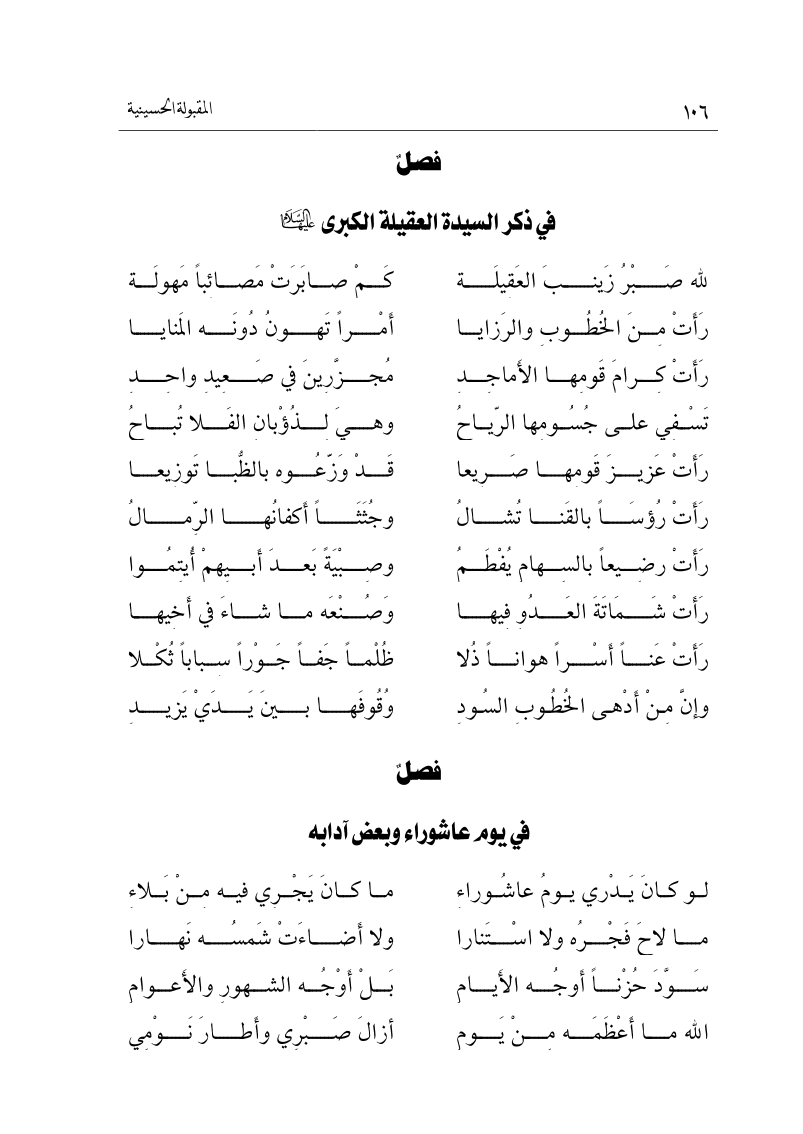 ١٠٦ المقبولة الحسينية
فصلٌ
في ذكر السيدة العقيلة الكبرى عليها السلام
لله صَبْرُ زَينبَ العَقيلَة كَمْ صابَرَتْ مَصائباً مَهولَة
رَأَتْ منَ الخُطُوبِ والرَزايا أَمْراً تَهونُ دُونَه المَنايا
رَأَتْ كرامَ قَومِها الأَماجدِ مُجزَّرينَ في صَعيدٍ واحدِ
تَسْفي على جُسُومها الرّياحُ وهيَ لذُؤْبانِ الفَلا تُباحُ
رَأَتْ عَزيزَ قَومِها صَريعا قَدْ وَزّعُوه بالظُّبا تَوزيعا
رَأَتْ رُؤسَاً بالقَنا تُشالُ وجُثَثَاً أَكفانُها الرّمالُ
رَأَتْ رضيعاً بالسهام يُفْطَمُ وصبْيَةً بَعدَ أَبيهمْ أُيتِمُوا
رَأَتْ شَمَاتَةَ العَدُو فيها وَصُنْعَه ما شاءَ في أَخيها
رَأَتْ عَناً أَسْراً هواناً ذُلا ظُلْماً جَفاً جَوْراً سباباً ثُكْلا
وإنَّ منْ أَدْهى الخُطُوبِ السُودِ وُقُوفَها بينَ يَدَيْ يَزيدِ
فصلٌ
في يوم عاشوراء وبعض آدابه
لو كانَ يَدْري يومُ عاشُوراءِ ما كانَ يَجْري فيه منْ بَلاءِ
ما لاحَ فَجْرُه ولا اسْتَنارا ولا أَضاءَتْ شَمسُه نَهارا
سَوَّدَ حُزْناً أَوجُه الأَيامِ بَلْ أَوْجُه الشهورِ والأَعوامِ
الله ما أَعْظَمَه منْ يَومِ أزالَ صَبْري وأَطارَ نَوْمِي